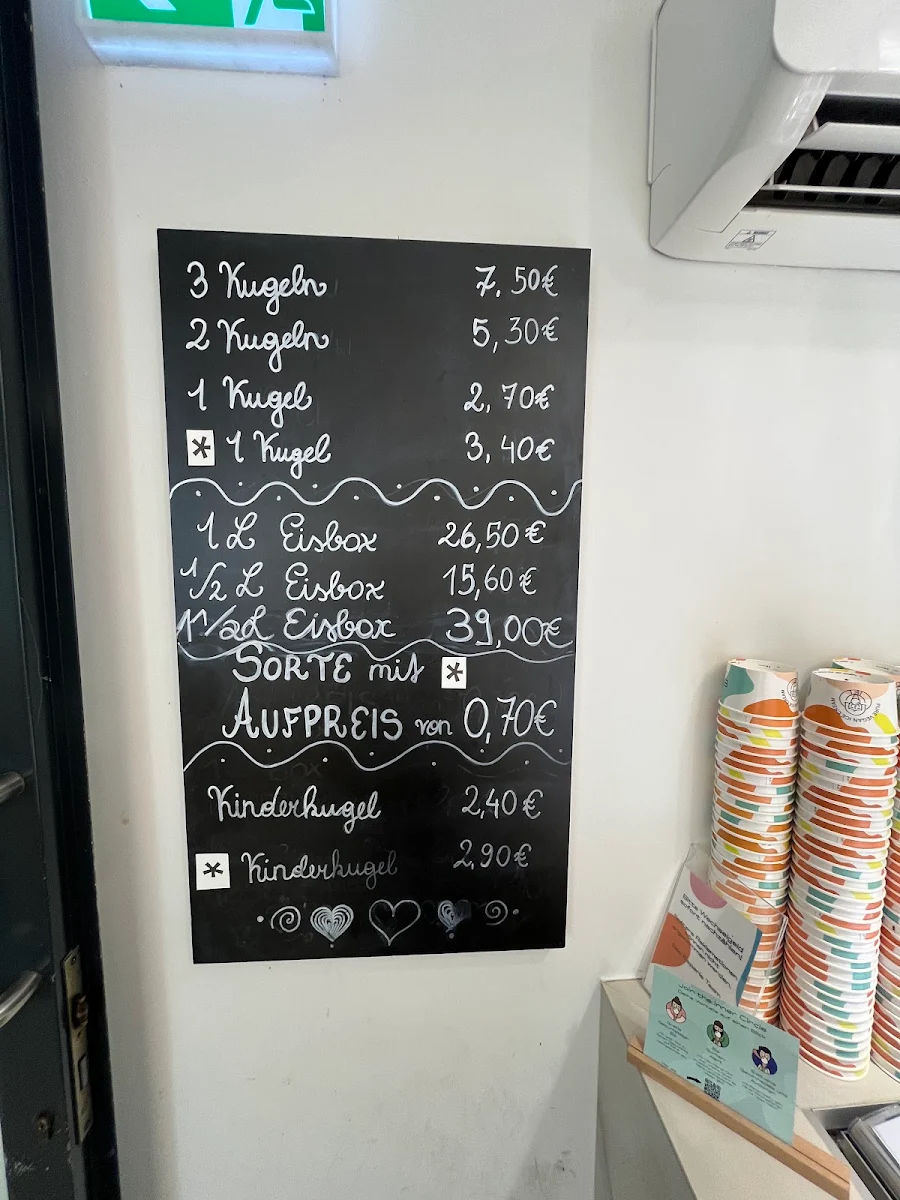 3 Kugeln 7,50€
2 Kugeln 5,30€
1 Kugel 2,70€
* 1 Kugel 3,40€
1 L Eisbox 26,50€
1/2 L Eisbox 15,60€
1 1/2 L Eisbox 39,00€
SORTE mit *
AUFPREIS von 0,70€
Kinderkugel 2,40€
* Kinderkugel 2,90€
Bitte Wechselgeld
sofort nachzählen!
Join the Inner Circle